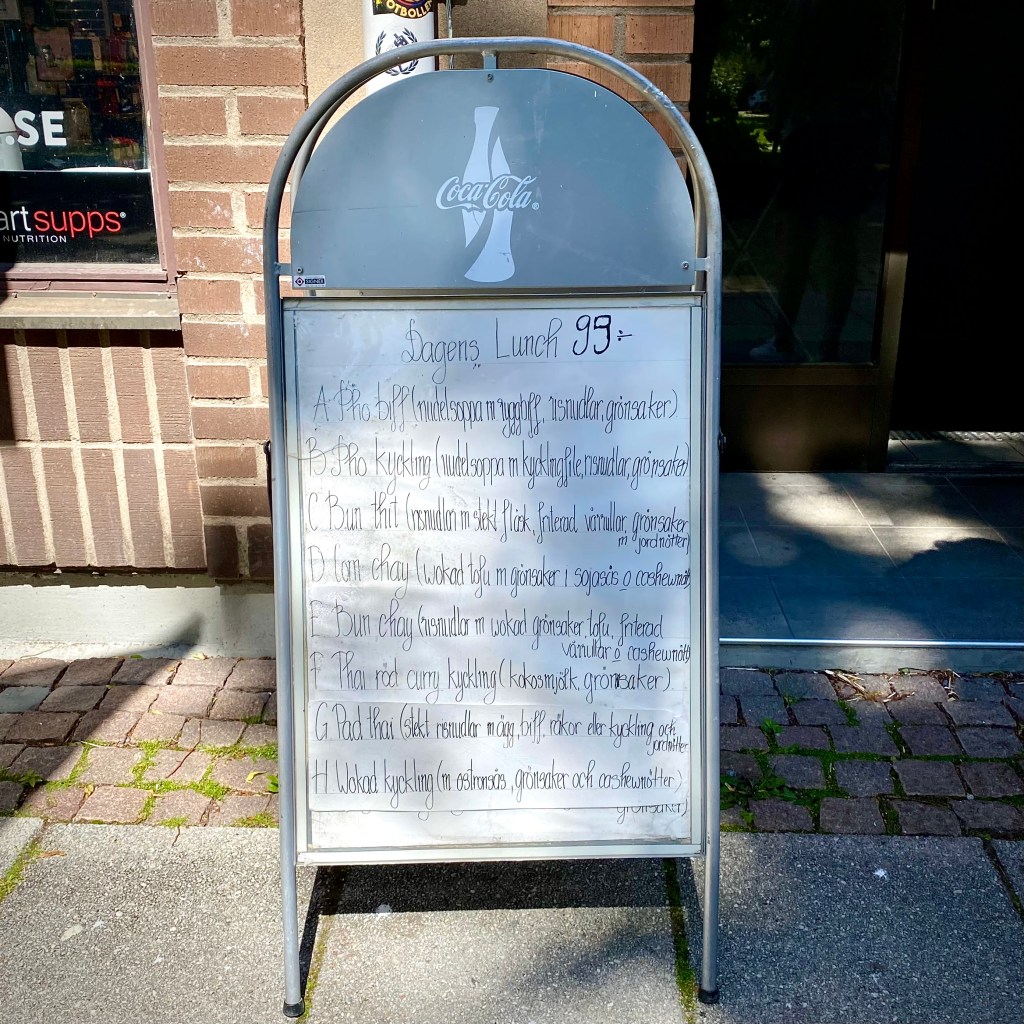 OTBOLLE
.SE
art supps®
NUTRITION
Coca-Cola®
Dagens Lunch 99:-
A Pho biff (nudelsoppa m ryggbiff, risnudlar, grönsaker)
B Pho kyckling (nudelsoppa m kycklingfile, risnudlar, grönsaker)
C Bun thit (risnudlar m stekt fläsk, friterad vårrullar, grönsaker
m jordnötter)
D Com chay (wokad tofu m grönsaker i sojasås o cashewnöt)
E Bun chay (risnudlar m wokad grönsaker, tofu, friterad
vårrullar o cashewnött)
F Thai röd curry kyckling (kokosmjölk, grönsaker)
G Pad thai (stekt risnudlar m ägg, biff, räkor eller kyckling och
jordnötter
H Wokad kyckling (m ostronsås, grönsaker och cashewnötter)
grönsaker)